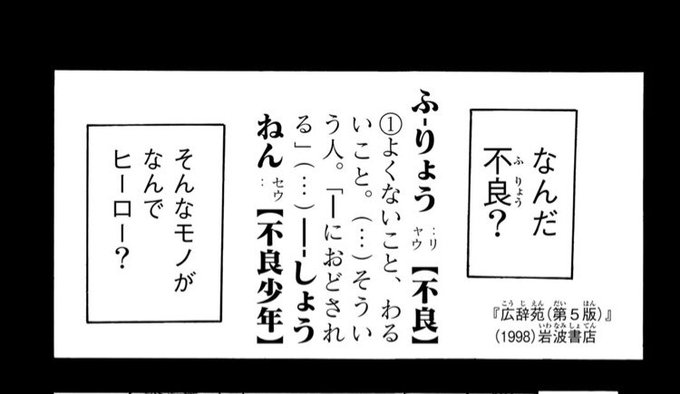 なんだ
不良?
ふ‐りょう‥リヤウ【不良】
①よくないこと、わる
いこと。(…)そうい
う人。「―におどされ
る」(…)―‐しょう
ねん‥セウ【不良少年】
『広辞苑(第5版)』
(1998)岩波書店
そんなモノが
なんで
ヒーロー?